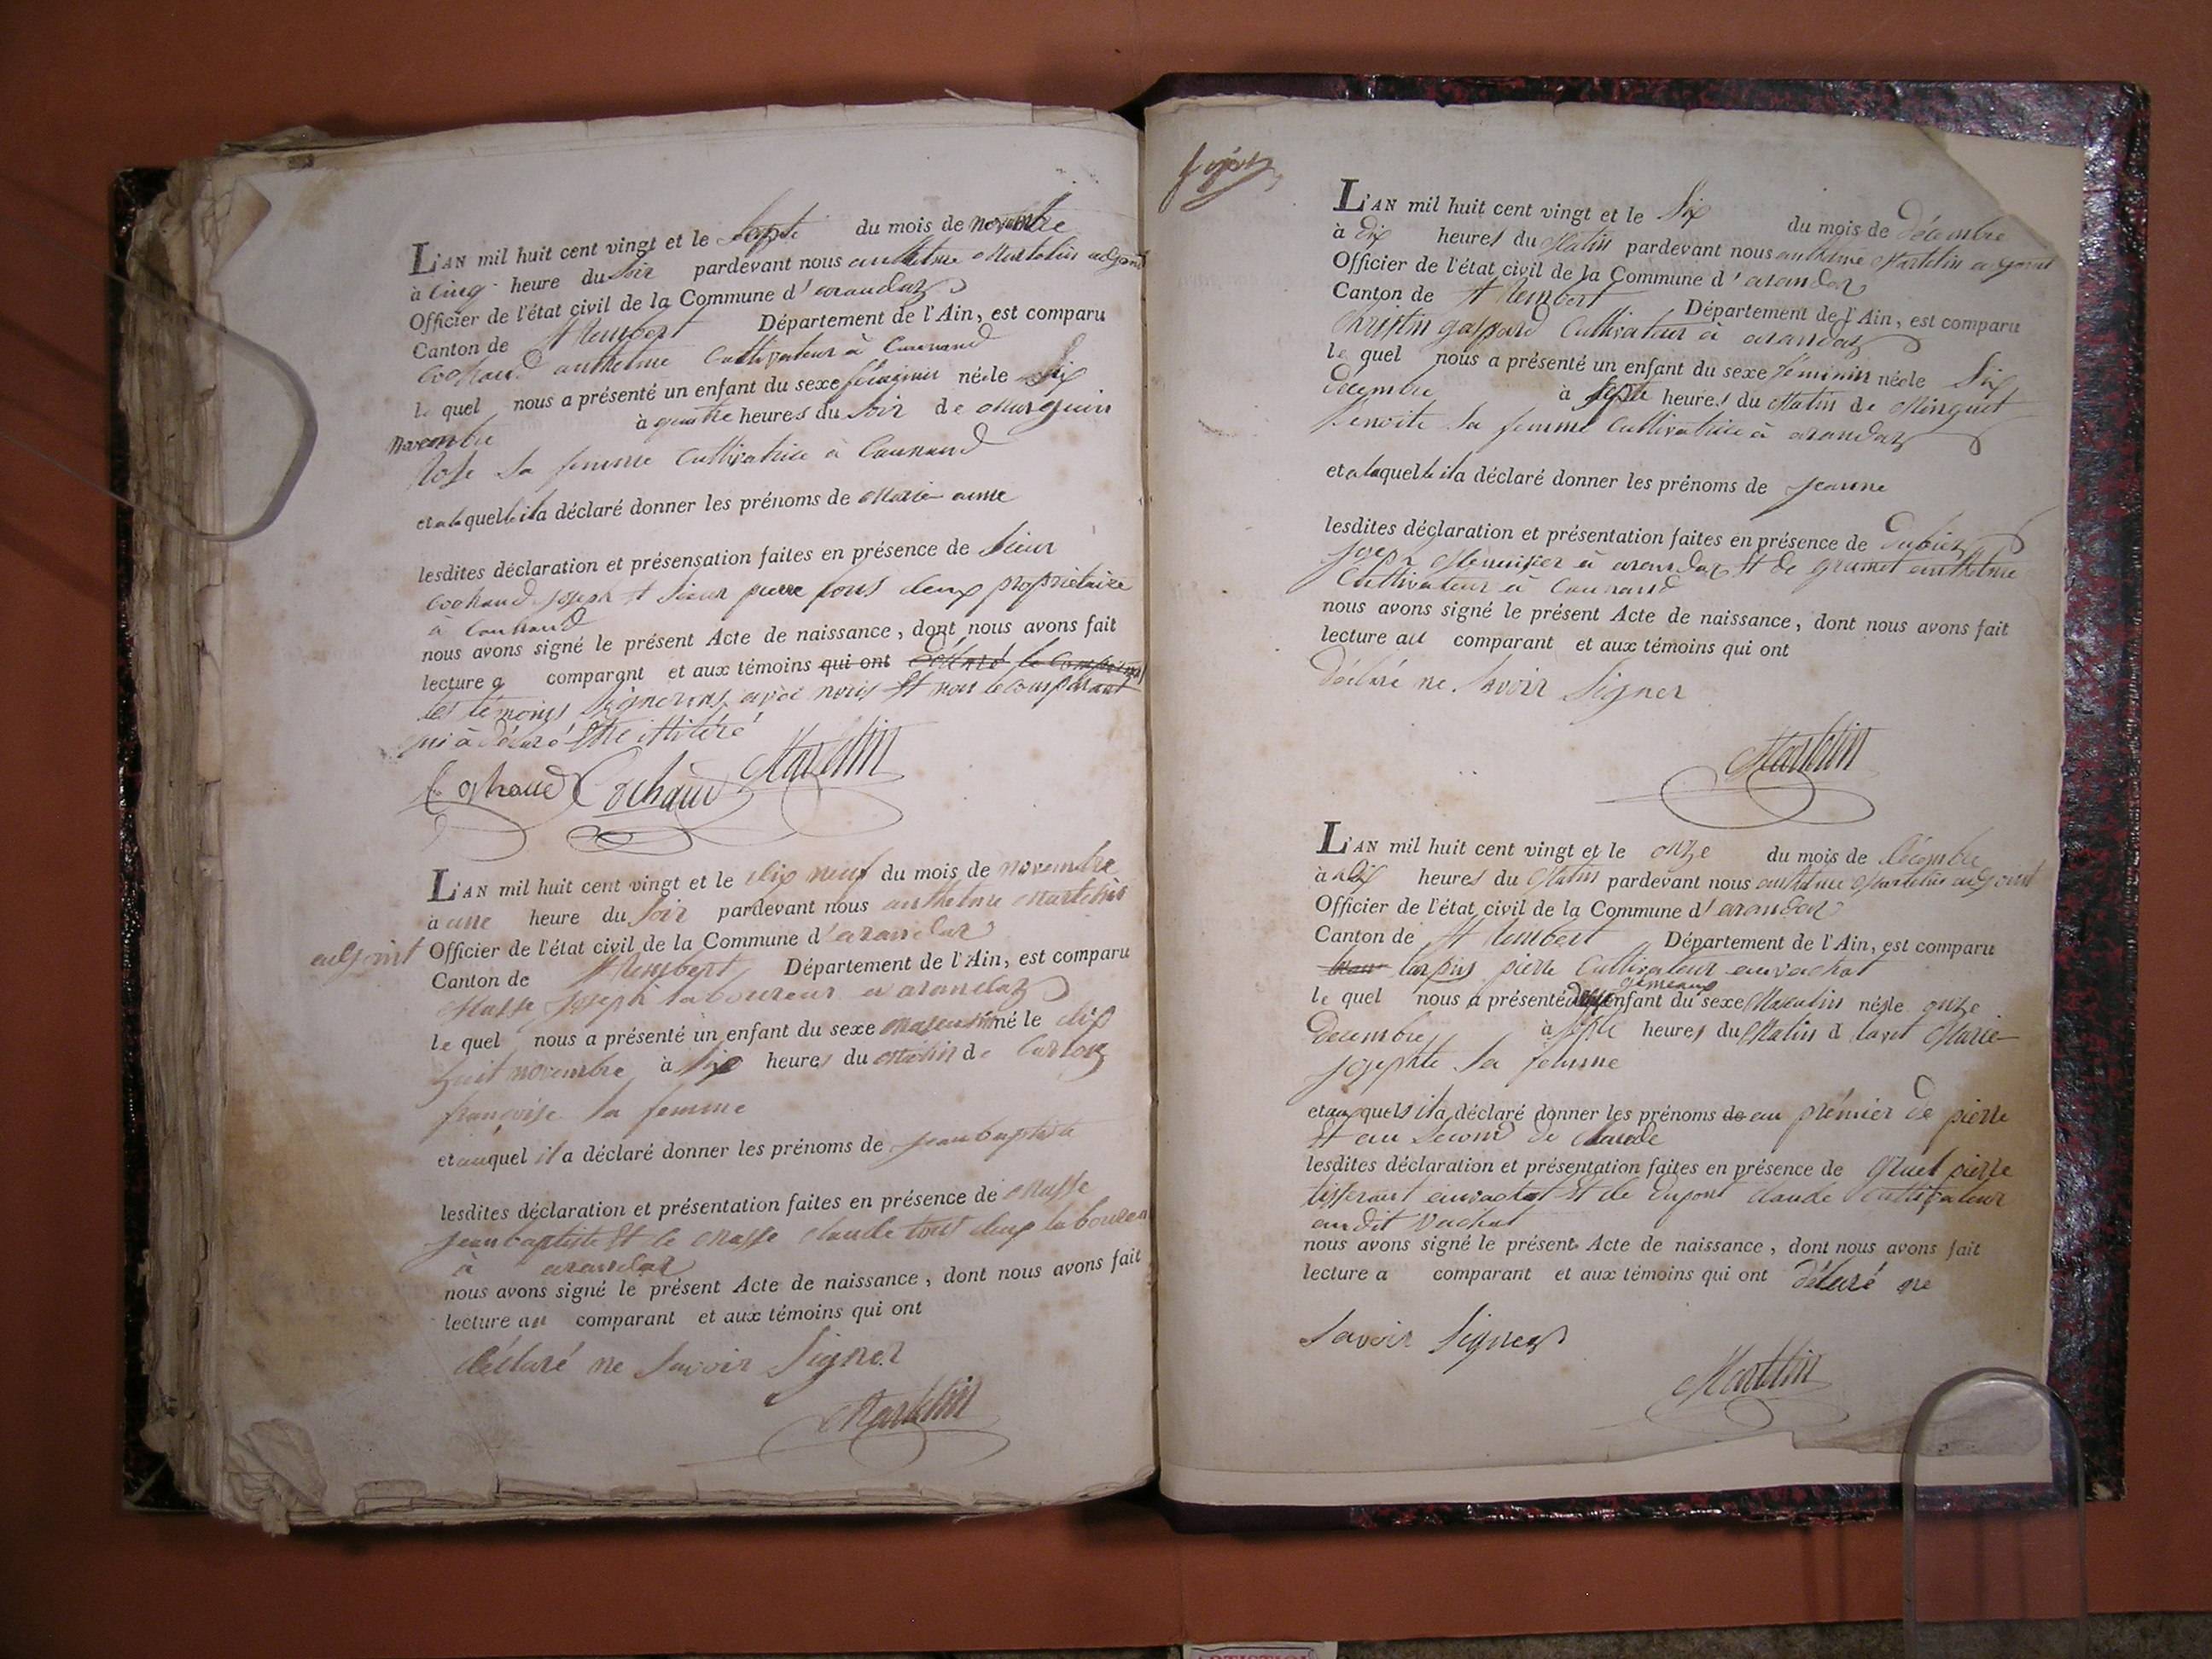 L'AN mil huit cent vingt et le Septe du mois de novembre
à Cinq heure du Soir pardevant nous anthelme Martelin adjoint
Officier de l'état civil de la Commune d'arandaz
Canton de St Rembert Département de l'Ain, est comparu
Cochaud anthelme Cultivateur à Caunand
le quel nous a présenté un enfant du sexe féminin née le Six
novembre à quatre heures du Soir de
Rose Sa femme Cultivatrice à Caunand
et a la quelle il a déclaré donner les prénoms de Marie anne
lesdites déclaration et présensation faites en présence de Sieur
Cochaud Joseph et Sieur pierre tous deux propriétaire
à
nous avons signé le présent Acte de naissance, dont nous avons fait
lecture a comparant et aux témoins qui ont déclaré le comparant
les témoins Signerons avec nous et non le comparant
qui à déclaré être illitéré
Cochaud Cochaud Martelin
L'AN mil huit cent vingt et le dix neuf du mois de novembre
à une heure du Soir pardevant nous anthelme Martelin
adjoint Officier de l'état civil de la Commune d'arandaz
Canton de St Rembert Département de l'Ain, est comparu
Masse Joseph laboureur a arandaz
le quel nous a présenté un enfant du sexe Masculin né le dix
huit novembre à Six heures du Matin de
françoise Sa femme
et auquel il a déclaré donner les prénoms de jean baptiste
lesdites déclaration et présentation faites en présence de Masse
jean baptiste et de Masse Claude tous deux laboureur
à arandaz
nous avons signé le présent Acte de naissance, dont nous avons fait
lecture au comparant et aux témoins qui ont
déclaré ne Savoir Signer
Martelin
L'AN mil huit cent vingt et le Six du mois de décembre
à dix heures du Matin pardevant nous anthelme Martelin adjoint
Officier de l'état civil de la Commune d'arandaz
Canton de St Rembert Département de l'Ain, est comparu
Christin gaspard Cultivateur à arandaz
le quel nous a présenté un enfant du sexe féminin née le Six
decembre à Septe heures du Matin de Minguet
benoite Sa femme Cultivatrice à arandaz
et a laquelle il a déclaré donner les prénoms de jeanne
lesdites déclaration et présentation faites en présence de Dubiez
joseph Menuisier à arandaz et de gramet anthelme
Cultivateur à Caunand
nous avons signé le présent Acte de naissance, dont nous avons fait
lecture au comparant et aux témoins qui ont
déclaré ne Savoir Signer
Martelin
L'AN mil huit cent vingt et le onze du mois de décembre
à dix heures du Matin pardevant nous anthelme Martelin adjoint
Officier de l'état civil de la Commune d'arandaz
Canton de St Rembert Département de l'Ain, est comparu
pierre Cultivateur au vachat
le quel nous a présenté deux enfant gémeaux du sexe Masculin nés le onze
decembre à Septe heures du Matin d Marie
josephte Sa femme
et aux quels il a déclaré donner les prénoms de au prémier de pierre
et au Second de Claude
lesdites déclaration et présentation faites en présence de pierre
tisserant au vachat et de Dupont Claude Cultivateur
audit Vachat
nous avons signé le présent Acte de naissance, dont nous avons fait
lecture a comparant et aux témoins qui ont déclaré ne
Savoir Signer
Martelin